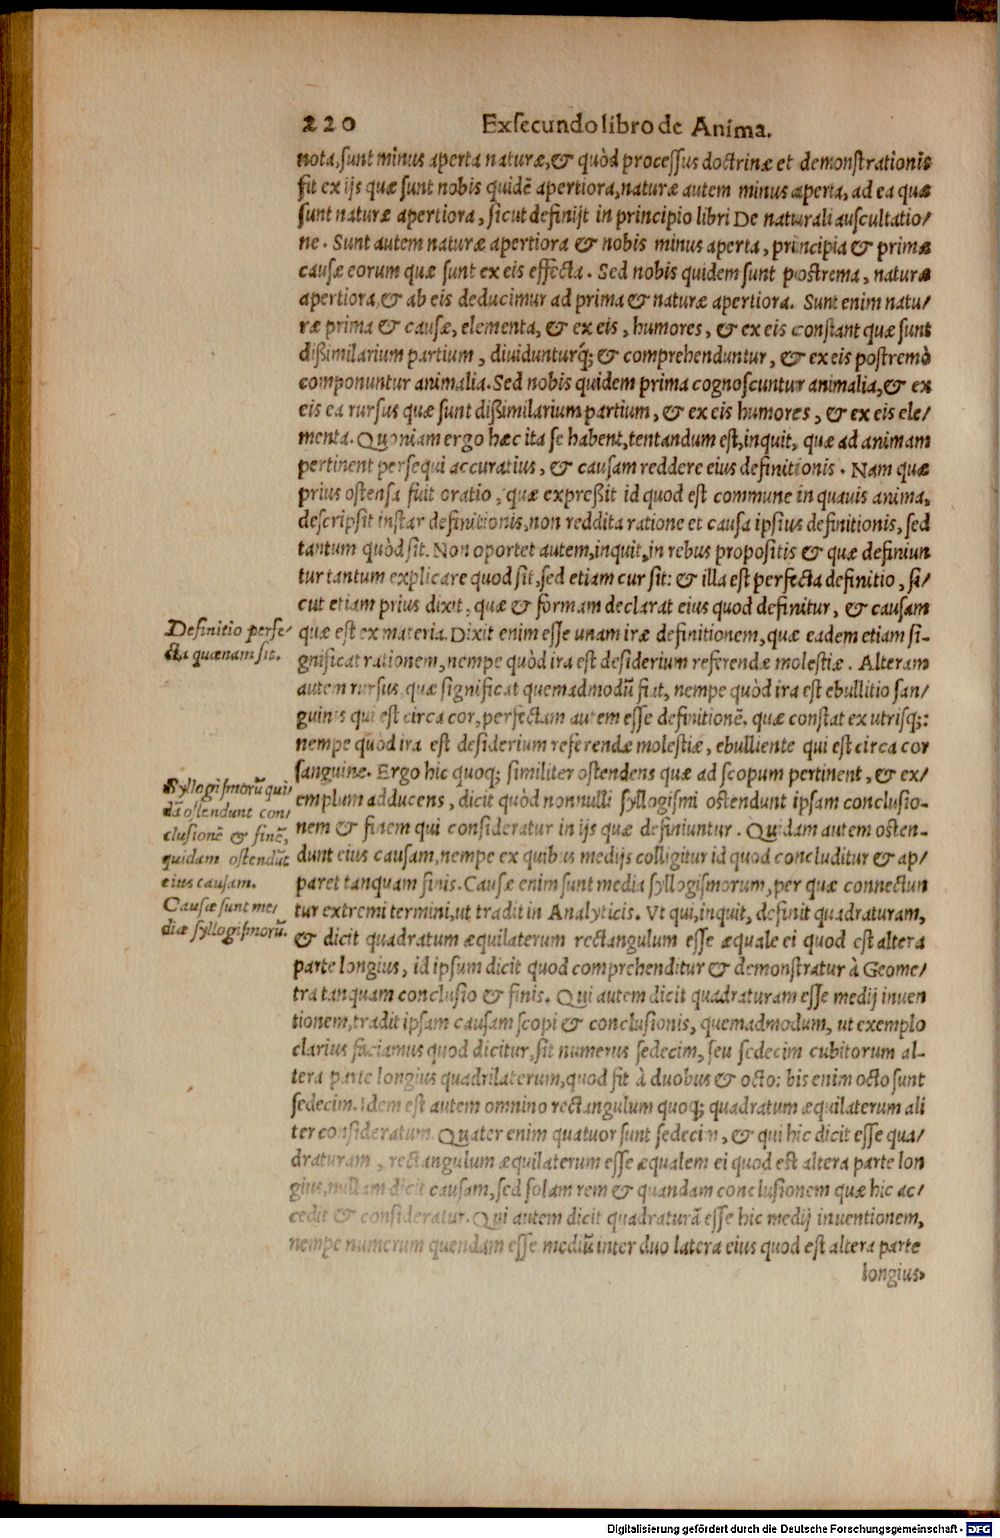 220 Ex secundo libro de Anima.
nota, sunt minus aperta naturæ, & quòd processus doctrinæ et demonstrationis
fit ex ijs quæ sunt nobis quidē apertiora, naturæ autem minus aperta, ad ea quæ
sunt naturæ apertiora, sicut definijt in principio libri De naturali auscultatio/
ne. Sunt autem naturæ apertiora & nobis minus aperta, principia & primæ
causæ eorum quæ sunt ex eis effecta. Sed nobis quidem sunt postrema, naturæ
apertiora, & ab eis deducimur ad prima & naturæ apertiora. Sunt enim natu/
ræ prima & causæ, elementa, & ex eis, humores, & ex eis constant quæ sunt
dißimilarium partium, diuidunturq́; & comprehenduntur, & ex eis postremò
componuntur animalia. Sed nobis quidem prima cognoscuntur animalia, & ex
eis ea rursus quæ sunt dißimilarium partium, & ex eis humores, & ex eis ele/
menta. Quoniam ergo hæc ita se habent, tentandum est, inquit, quæ ad animam
pertinent persequi accuratius, & causam reddere eius definitionis. Nam quæ
prius ostensa fuit oratio, quæ expreßit id quod est commune in quauis anima,
descripsit instar definitionis, non reddita ratione et causa ipsius definitionis, sed
tantum quòd sit. Non oportet autem, inquit, in rebus propositis & quæ definiun
tur tantum explicare quod sit, sed etiam cur sit: & illa est perfecta definitio, si/
cut etiam prius dixit, quæ & formam declarat eius quod definitur, & causam
Definitio perfe/
cta quænam sit.
quæ est ex materia. Dixit enim esse unam iræ definitionem, quæ eadem etiam si-
gnificat rationem, nempe quòd ira est desiderium referendæ molestiæ. Alteram
autem rursus, quæ significat quemadmodū fiat, nempe quòd ira est ebullitio san/
guinis qui est circa cor, perfectam autem esse definitionē, quæ constat ex utrisq;:
nempe quòd ira est desiderium referendæ molestiæ, ebulliente qui est circa cor
sanguine. Ergo hic quoq; similiter ostendens quæ ad scopum pertinent, & ex/
Syllogismorū qui/
dā ostendunt con/
clusionē & finē,
quidam ostendūt
eius causam.
Causæ sunt me/
diæ syllogismorū.
emplum adducens, dicit quòd nonnulli syllogismi ostendunt ipsam conclusio-
nem & finem qui consideratur in ijs quæ definiuntur. Quidam autem osten-
dunt eius causam, nempe ex quibus medijs colligitur id quod concluditur & ap/
paret tanquam finis. Causæ enim sunt media syllogismorum, per quæ connectun
tur extremi termini, ut tradit in Analyticis. Vt qui, inquit, definit quadraturam,
& dicit quadratum æquilaterum rectangulum esse æquale ei quod est altera
parte longius, id ipsum dicit quod comprehenditur & demonstratur à Geome/
tra tanquam conclusio & finis. Qui autem dicit quadraturam esse medij inuen
tionem, tradit ipsam causam scopi & conclusionis, quemadmodum, ut exemplo
clarius faciamus quod dicitur, sit numerus sedecim, seu sedecim cubitorum al-
tera parte longius quadrilaterum, quod fit à duobus & octo: bis enim octo sunt
sedecim. Idem est autem omnino rectangulum quoq; quadratum æquilaterum ali
ter consideratum. Quater enim quatuor sunt sedecim, & qui hic dicit esse qua/
draturam, rectangulum æquilaterum esse æqualem ei quod est altera parte lon
gius, nullam dicit causam, sed solam rem & quandam conclusionem quæ hic ac/
cedit & consideratur. Qui autem dicit quadraturā esse hic medij inuentionem,
nempe numerum quendam esse mediū inter duo latera eius quod est altera parte
longius,
Digitalisierung gefördert durch die Deutsche Forschungsgemeinschaft - DFG